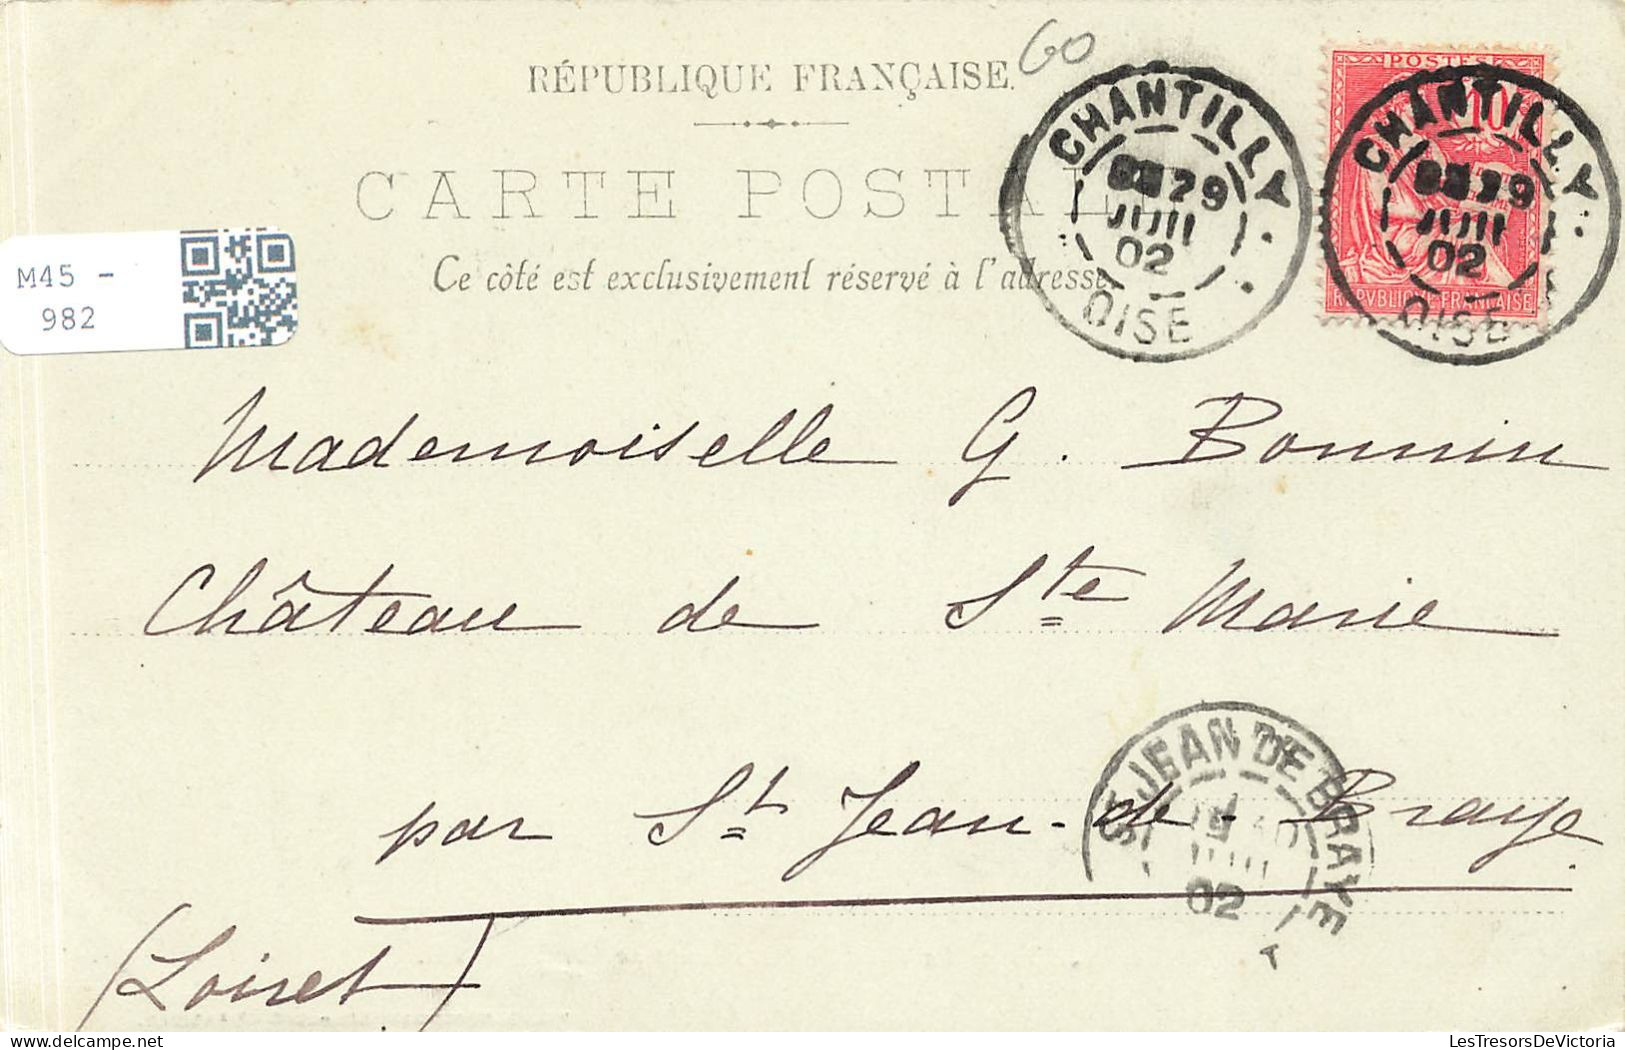 60
RÉPUBLIQUE FRANÇAISE
CARTE POSTALE
Ce côté est exclusivement réservé à l'adresse
M45 -
982
CHANTILLY
29
JUIN
02
OISE
POSTES
10
REPVBLIQVE FRANÇAISE
CHANTILLY
29
JUIN
02
OISE
Mademoiselle G. Bonnin
Château de Ste Marie
par St Jean-de-Braye
(Loiret)
ST JEAN DE BRAYE
30
JUIN
02
LesTresorsDeVictoria.com